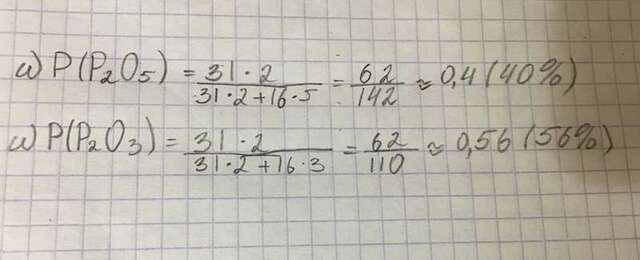 ω P(P₂O₅) = 31·2 / 31·2+16·5 = 62/142 ≈ 0,4 (40%)
ω P(P₂O₃) = 31·2 / 31·2+16·3 = 62/110 ≈ 0,56 (56%)